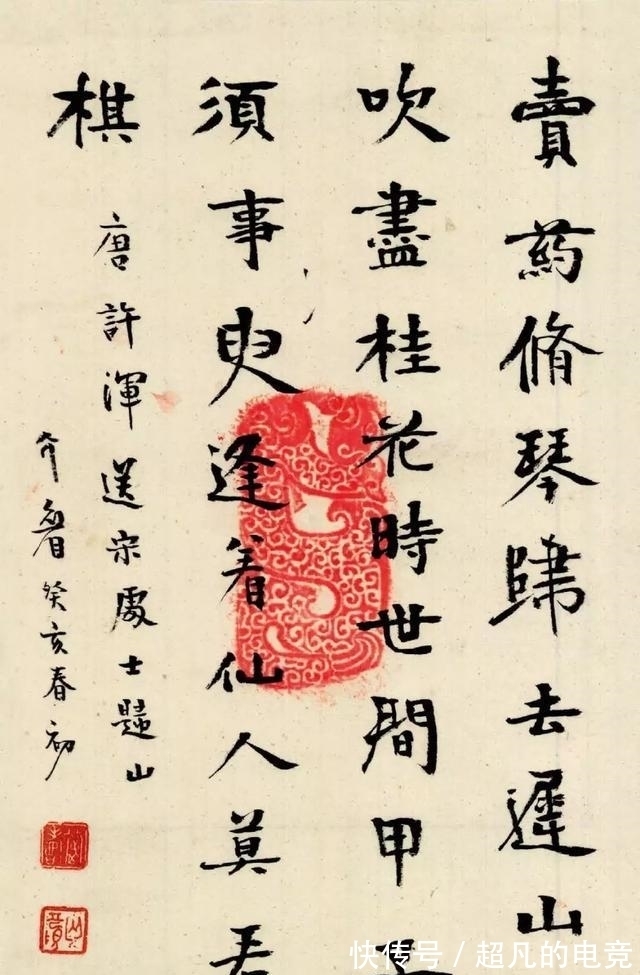 賣葯脩琴歸去遲山
吹盡桂花時世間甲
須事臾逢着仙人莫
棋
唐許渾送宋處士歸山
介 癸亥春初
快传号 / 超凡的电竞